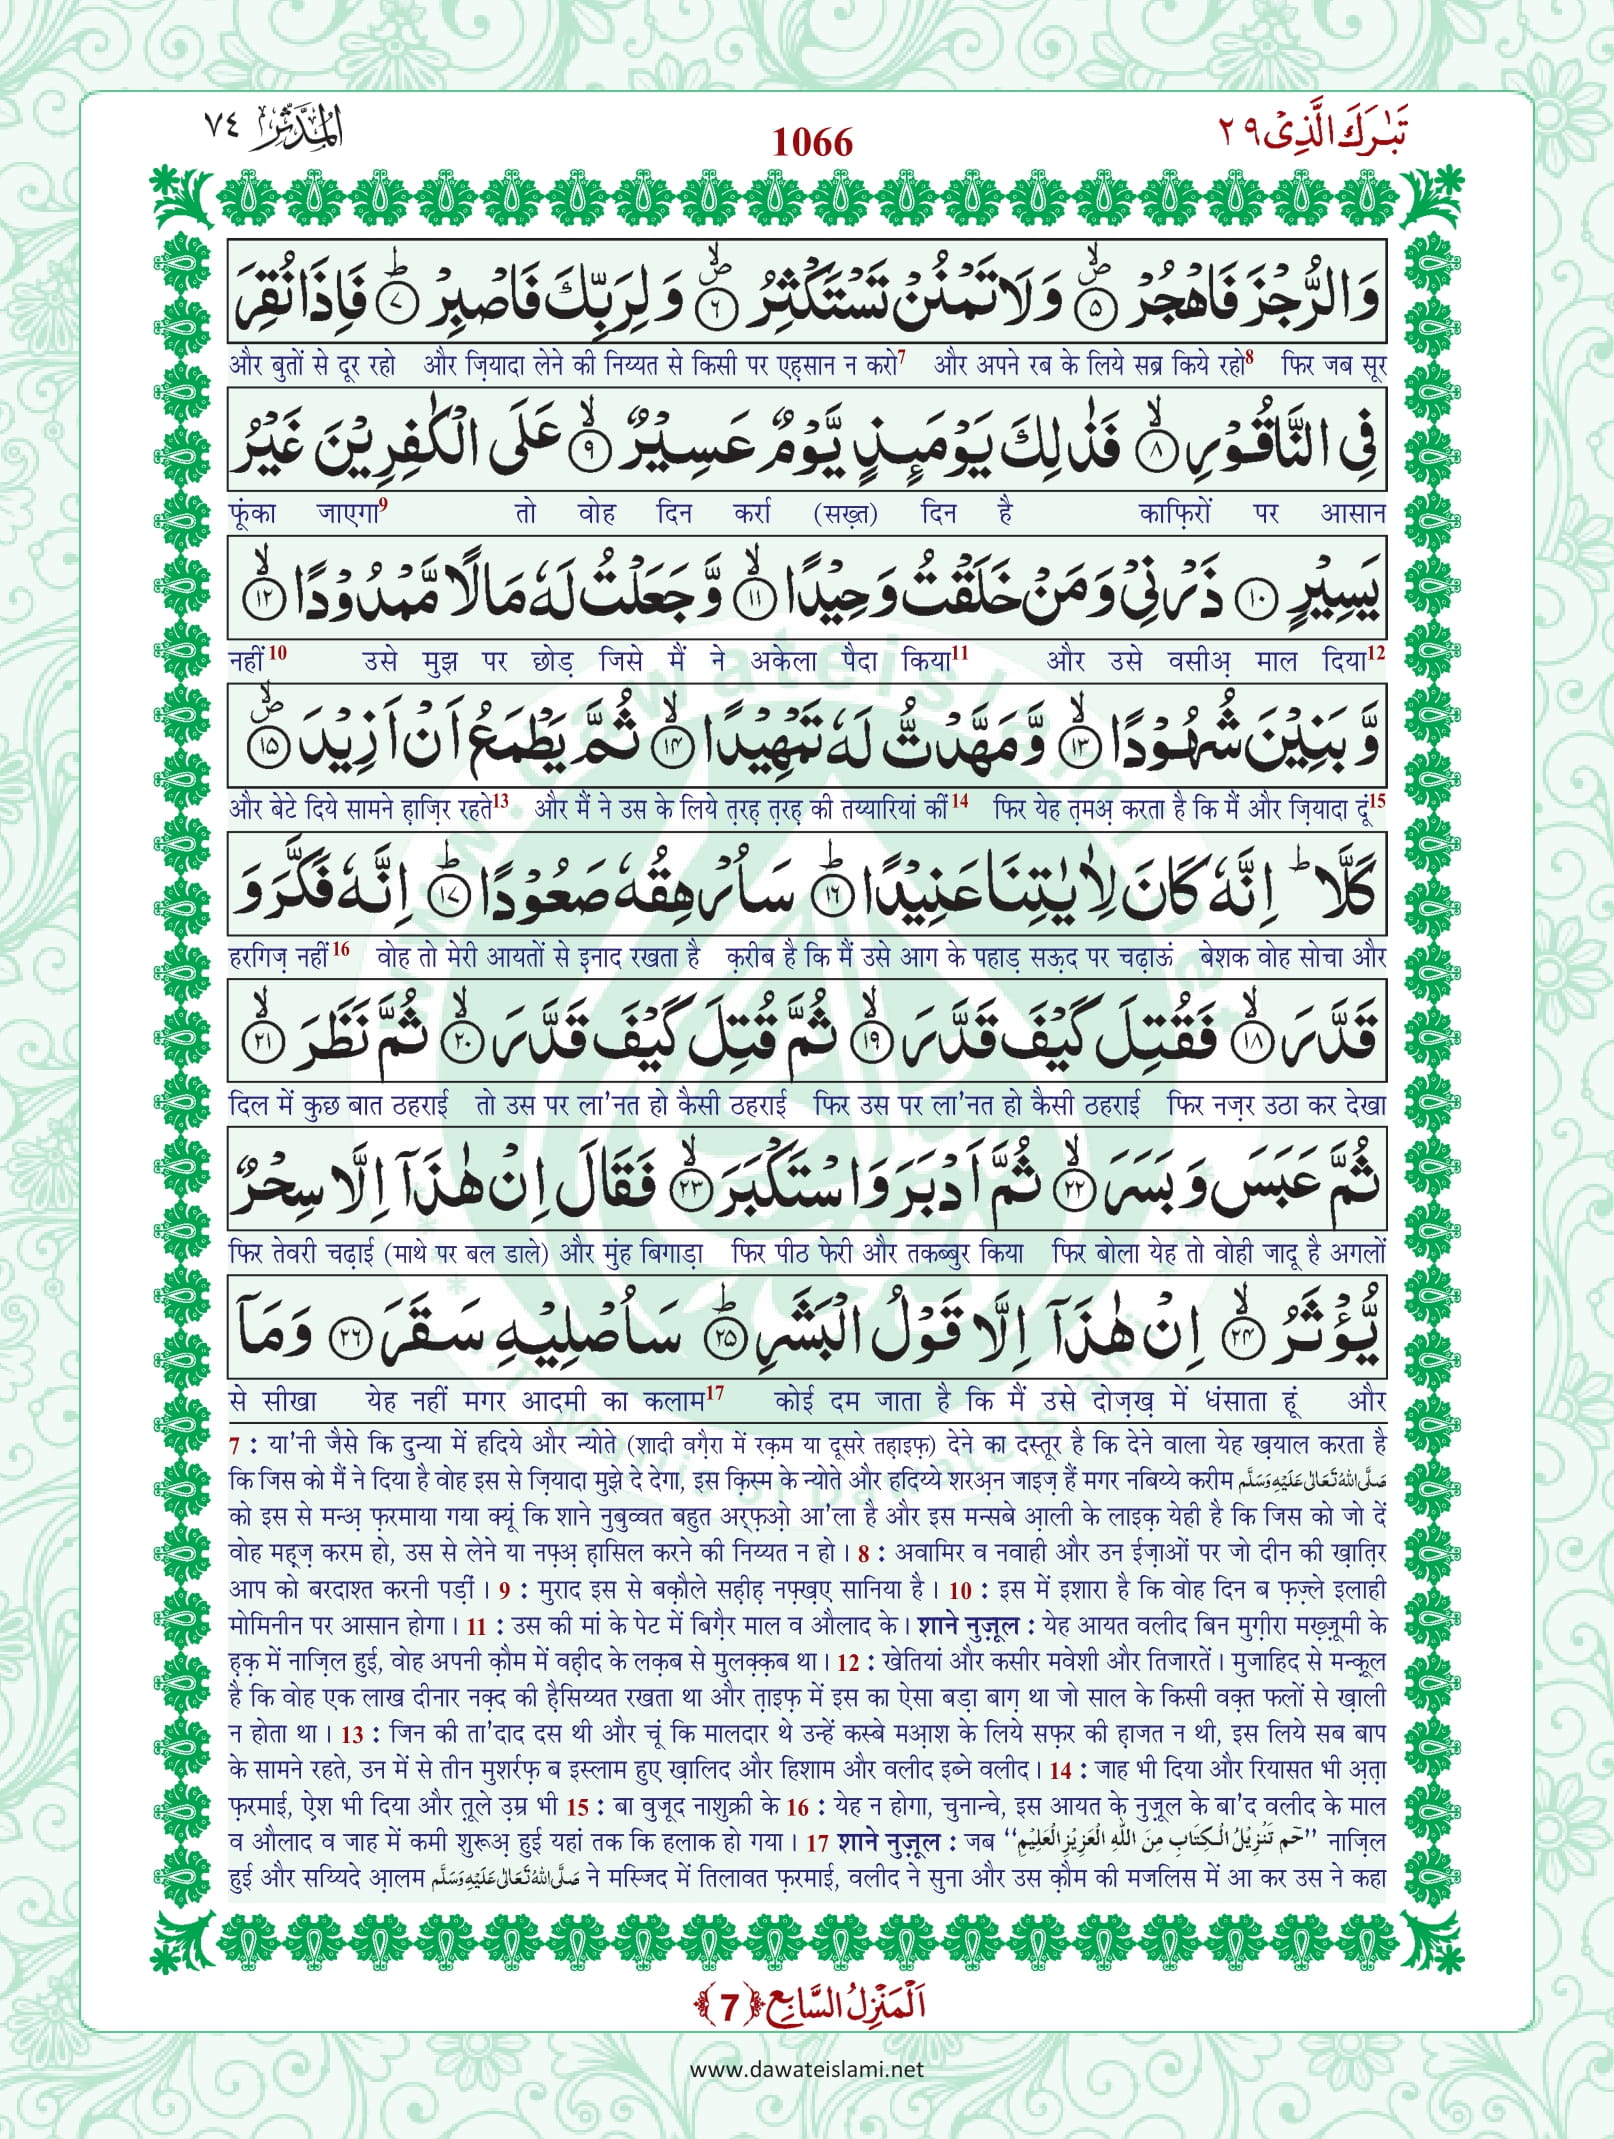 تَبٰرَكَ الَّذِیْ ۲۹
1066
اَلْمُدَّثِّر ۷٤
وَ الرُّجْزَ فَاهْجُرْ ﴿۵﴾۪ۙ وَ لَا تَمْنُنْ تَسْتَكْثِرُ ﴿۶﴾۪ۙ وَ لِرَبِّكَ فَاصْبِرْ ﴿۷﴾ؕ فَاِذَا نُقِرَ
और बुतों से दूर रहो और ज़ियादा लेने की निय्यत से किसी पर एह़सान न करो7 और अपने रब के लिये सब्र किये रहो8 फिर जब सूर
فِی النَّاقُوْرِ ﴿۸﴾ۙ فَذٰلِكَ یَوْمَىٕذٍ یَّوْمٌ عَسِیْرٌ ﴿۹﴾ۙ عَلَى الْكٰفِرِیْنَ غَیْرُ
फूंका जाएगा9 तो वोह दिन कर्रा (सख़्त) दिन है काफ़िरों पर आसान
یَسِیْرٍ ﴿۱۰﴾ ذَرْنِیْ وَ مَنْ خَلَقْتُ وَحِیْدًا ﴿۱۱﴾ۙ وَّ جَعَلْتُ لَهٗ مَالًا مَّمْدُوْدًا ﴿۱۲﴾ۙ
नहीं10 उसे मुझ पर छोड़ जिसे मैं ने अकेला पैदा किया11 और उसे वसीअ़ माल दिया12
وَّ بَنِیْنَ شُهُوْدًا ﴿۱۳﴾ۙ وَّ مَهَّدْتُّ لَهٗ تَمْهِیْدًا ﴿۱۴﴾ۙ ثُمَّ یَطْمَعُ اَنْ اَزِیْدَ ﴿۱۵﴾۪ۙ
और बेटे दिये सामने ह़ाज़िर रहते13 और मैं ने उस के लिये त़रह़ त़रह़ की तय्यारियां कीं14 फिर येह त़मअ़ करता है कि मैं और ज़ियादा दूं15
كَلَّاؕ اِنَّهٗ كَانَ لِاٰیٰتِنَا عَنِیْدًا ﴿۱۶﴾ؕ سَاُرْهِقُهٗ صَعُوْدًا ﴿۱۷﴾ؕ اِنَّهٗ فَكَّرَ وَ
हरगिज़ नहीं16 वोह तो मेरी आयतों से इ़नाद रखता है क़रीब है कि मैं उसे आग के पहाड़ सऊ़द पर चढ़ाऊं बेशक वोह सोचा और
قَدَّرَ ﴿۱۸﴾ۙ فَقُتِلَ كَیْفَ قَدَّرَ ﴿۱۹﴾ۙ ثُمَّ قُتِلَ كَیْفَ قَدَّرَ ﴿۲۰﴾ۙ ثُمَّ نَظَرَ ﴿۲۱﴾ۙ
दिल में कुछ बात ठहराई तो उस पर ला'नत हो कैसी ठहराई फिर उस पर ला'नत हो कैसी ठहराई फिर नज़र उठा कर देखा
ثُمَّ عَبَسَ وَ بَسَرَ ﴿۲۲﴾ۙ ثُمَّ اَدْبَرَ وَ اسْتَكْبَرَ ﴿۲۳﴾ۙ فَقَالَ اِنْ هٰذَاۤ اِلَّا سِحْرٌ
फिर तेवरी चढ़ाई (माथे पर बल डाले) और मुंह बिगाड़ा फिर पीठ फेरी और तकब्बुर किया फिर बोला येह तो वोही जादू है अगलों
یُّؤْثَرُ ﴿۲۴﴾ۙ اِنْ هٰذَاۤ اِلَّا قَوْلُ الْبَشَرِ ﴿۲۵﴾ؕ سَاُصْلِیْهِ سَقَرَ ﴿۲۶﴾ وَ مَاۤ
से सीखा येह नहीं मगर आदमी का कलाम17 कोई दम जाता है कि मैं उसे दोज़ख़ में धंसाता हूं और
7 : या'नी जैसे कि दुन्या में हदिये और न्योते (शादी वग़ैरा में रक़म या दूसरे तह़ाइफ़) देने का दस्तूर है कि देने वाला येह ख़याल करता है
कि जिस को मैं ने दिया है वोह इस से ज़ियादा मुझे दे देगा, इस क़िस्म के न्योते और हदिय्ये शरअ़न जाइज़ हैं मगर नबिय्ये करीम صَلَّى اللهُ تَعَالٰى عَلَيْهِ وَسَلَّم
को इस से मन्अ़ फ़रमाया गया क्यूं कि शाने नुबुव्वत बहुत अर्फ़ओ़ आ'ला है और इस मन्सबे आ़ली के लाइक़ येही है कि जिस को जो दें
वोह मह़्ज़ करम हो, उस से लेने या नफ़्अ़ ह़ासिल करने की निय्यत न हो। 8 : अवामिर व नवाही और उन ईज़ाओं पर जो दीन की ख़ात़िर
आप को बरदाश्त करनी पड़ीं। 9 : मुराद इस से बक़ौले सह़ीह़ नफ़्ख़ए सानिया है। 10 : इस में इशारा है कि वोह दिन ब फ़ज़्ले इलाही
मोमिनीन पर आसान होगा। 11 : उस की मां के पेट में बिग़ैर माल व औलाद के। शाने नुज़ूल : येह आयत वलीद बिन मुग़ीरा मख़्ज़ूमी के
ह़क़ में नाज़िल हुई, वोह अपनी क़ौम में वह़ीद के लक़ब से मुलक़्क़ब था। 12 : खेतियां और कसीर मवेशी और तिजारतें। मुजाहिद से मन्क़ूल
है कि वोह एक लाख दीनार नक़्द की ह़ैसिय्यत रखता था और त़ाइफ़ में इस का ऐसा बड़ा बाग़ था जो साल के किसी वक़्त फलों से ख़ाली
न होता था। 13 : जिन की ता'दाद दस थी और चूं कि मालदार थे उन्हें कस्बे मआ़श के लिये सफ़र की ह़ाजत न थी, इस लिये सब बाप
के सामने रहते, उन में से तीन मुशर्रफ़ ब इस्लाम हुए ख़ालिद और हिशाम और वलीद इब्ने वलीद। 14 : जाह भी दिया और रियासत भी अ़त़ा
फ़रमाई, ऐ़श भी दिया और त़ूले उ़म्र भी 15 : बा वुजूद नाशुक्री के 16 : येह न होगा, चुनान्चे, इस आयत के नुज़ूल के बा'द वलीद के माल
व औलाद व जाह में कमी शुरूअ़ हुई यहां तक कि हलाक हो गया। 17 शाने नुज़ूल : जब ‘‘حٰمٓ تَنْزِيْلُ الْكِتَابِ مِنَ اللّٰهِ الْعَزِيْزِ الْعَلِيْمِ’’ नाज़िल
हुई और सय्यिदे आ़लम صَلَّى اللهُ تَعَالٰى عَلَيْهِ وَسَلَّم ने मस्जिद में तिलावत फ़रमाई, वलीद ने सुना और उस क़ौम की मजलिस में आ कर उस ने कहा
اَلْمَنْزِلُ السَّابِع ﴿7﴾
www.dawateislami.net